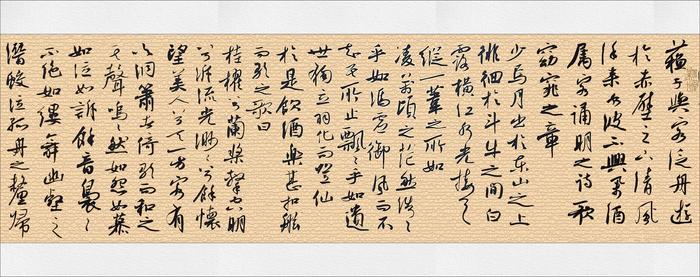 蘇子與客泛舟遊
於赤壁之下清風
徐来水波不興舉酒
属客誦明之詩歌
窈窕之章
少焉月出於東山之上
徘徊於斗牛之間白
露橫江水光接天
縱一葦之所如
凌萬頃之茫然浩浩
乎如馮虛御風而不
知其所止飄飄乎如遺
世獨立羽化而登仙
於是飲酒樂甚扣舷
而歌之歌曰
桂櫂兮蘭槳擊空明
兮泝流光渺渺兮餘懷
望美人兮天一方客有
吹洞簫者倚歌而和之
其聲嗚嗚然如怨如慕
如泣如訴餘音裊裊
不絕如縷舞幽壑之
潛蛟泣孤舟之嫠婦